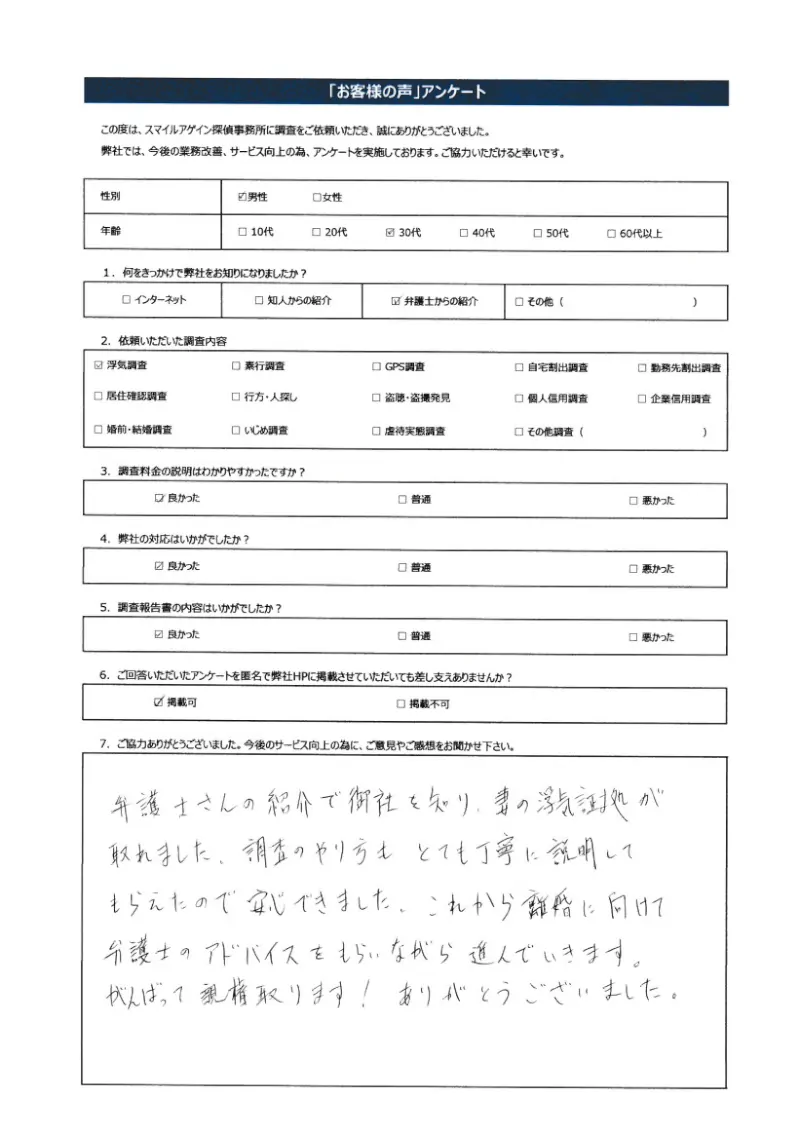 「お客様の声」アンケート
この度は、スマイルアゲイン探偵事務所に調査をご依頼いただき、誠にありがとうございました。
弊社では、今後の業務改善、サービス向上の為、アンケートを実施しております。ご協力いただけると幸いです。
性別 ☑男性 □女性
年齢 □ 10代 □ 20代 ☑ 30代 □ 40代 □ 50代 □ 60代以上
1．何をきっかけで弊社をお知りになりましたか？
□ インターネット □ 知人からの紹介 ☑ 弁護士からの紹介 □ その他（ ）
2．依頼いただいた調査内容
☑ 浮気調査 □ 素行調査 □ GPS調査 □ 自宅割出調査 □ 勤務先割出調査
□ 居住確認調査 □ 行方・人探し □ 盗聴・盗撮発見 □ 個人信用調査 □ 企業信用調査
□ 婚前・結婚調査 □ いじめ調査 □ 虐待実態調査 □ その他調査（ ）
3．調査料金の説明はわかりやすかったですか？
☑ 良かった □ 普通 □ 悪かった
4．弊社の対応はいかがでしたか？
☑ 良かった □ 普通 □ 悪かった
5．調査報告書の内容はいかがでしたか？
☑ 良かった □ 普通 □ 悪かった
6．ご回答いただいたアンケートを匿名で弊社HPに掲載させていただいても差し支えありませんか？
☑ 掲載可 □ 掲載不可
7．ご協力ありがとうございました。今後のサービス向上の為に、ご意見やご感想をお聞かせ下さい。
弁護士さんの紹介で御社を知り、妻の浮気証拠が
取れました、調査のやり方も とても丁寧に説明して
もらえたので安心できました、これから離婚に向けて
弁護士のアドバイスをもらいながら進んでいきます。
がんばって親権取ります！ありがとうございました。